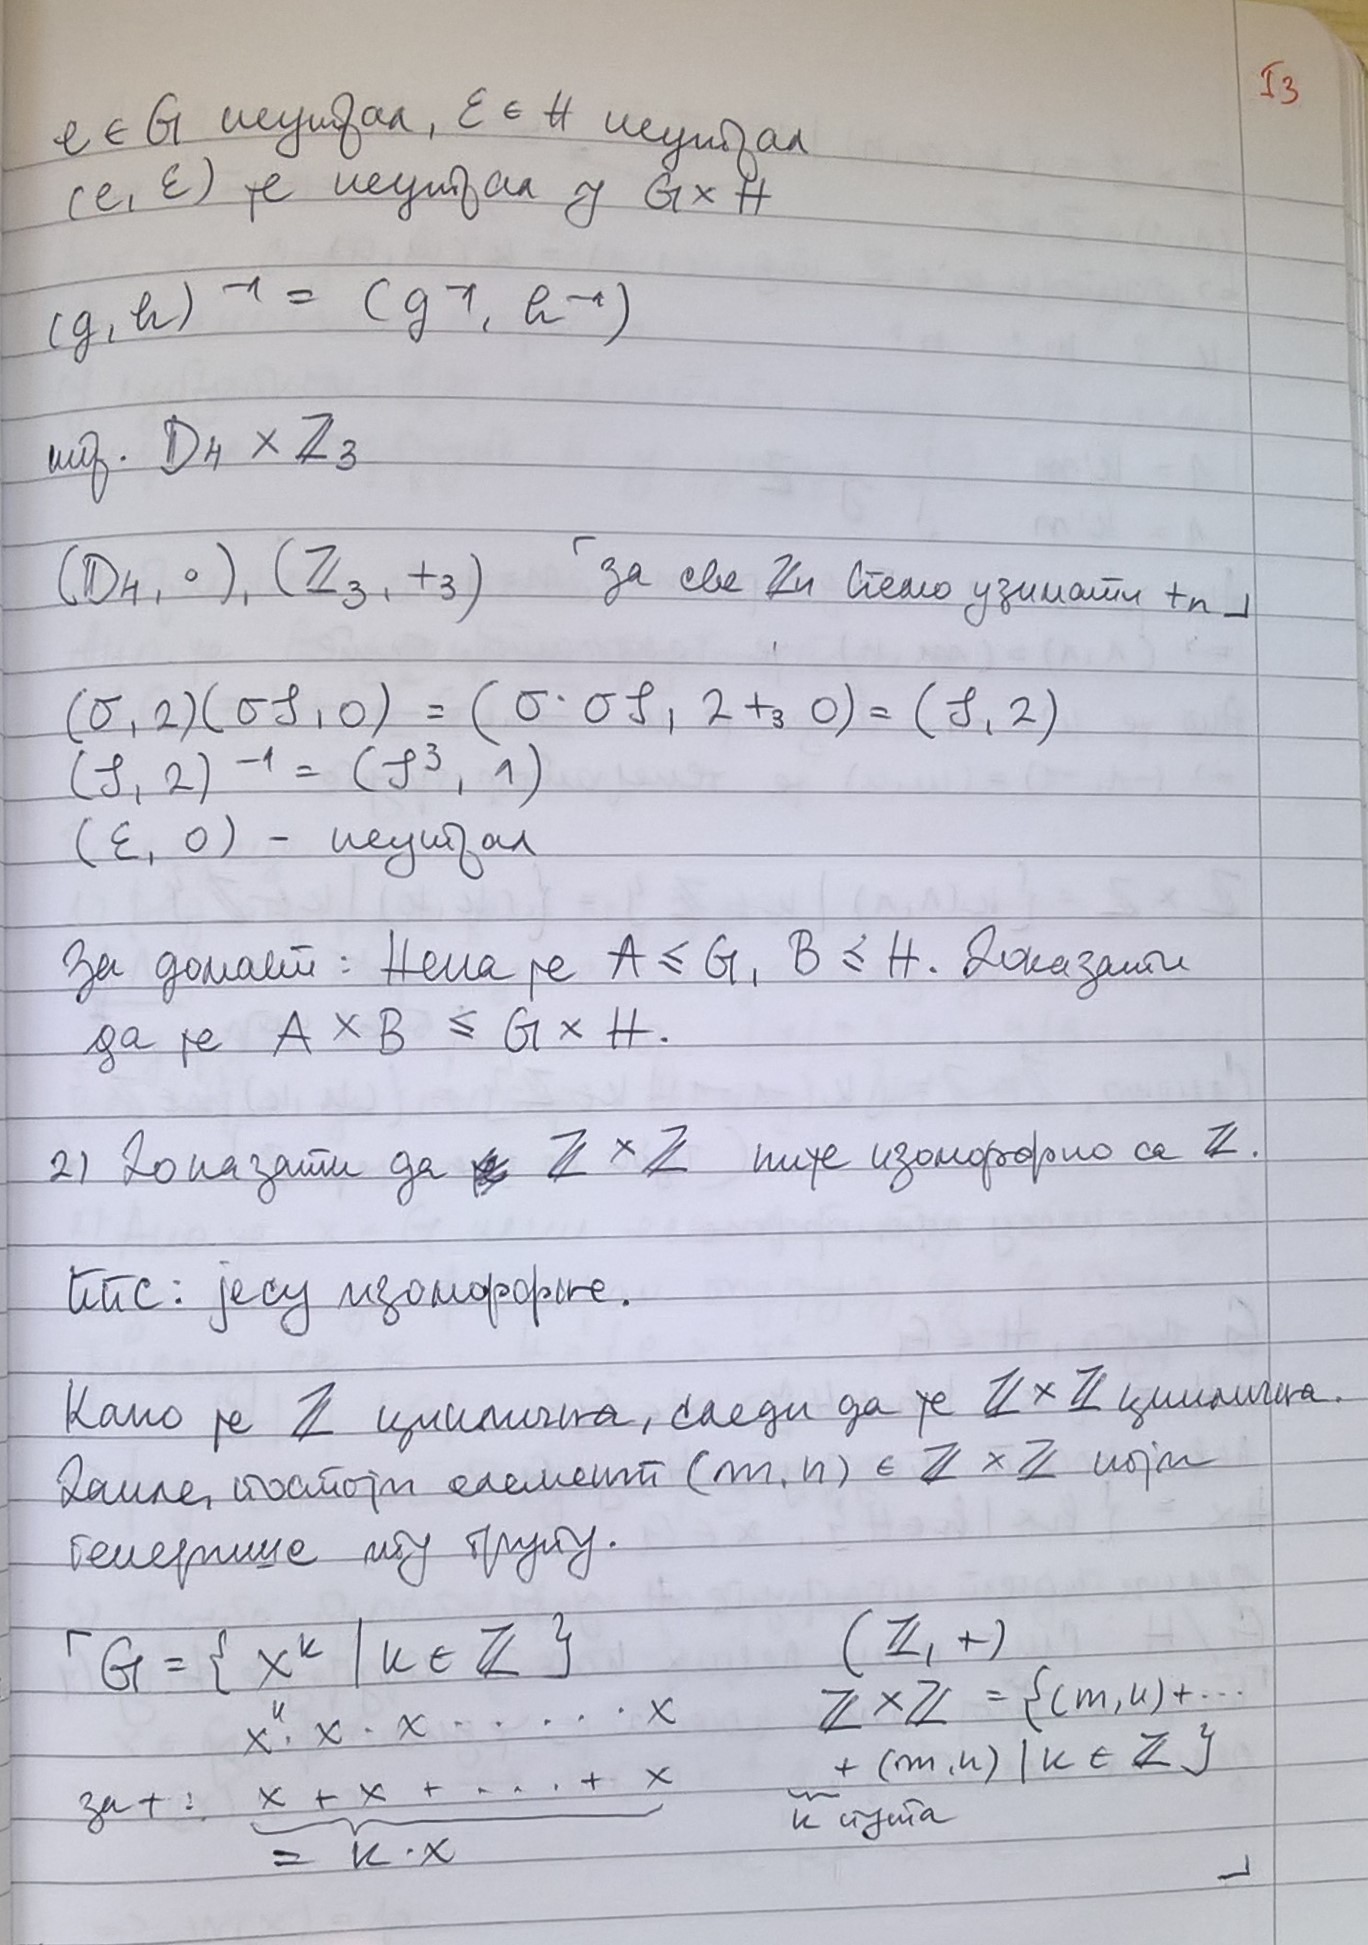 I3
e ∈ G неутрал, ε ∈ H неутрал
(e, ε) је неутрал у G × H
(g, h)⁻¹ = (g⁻¹, h⁻¹)
нпр. D₄ × ℤ₃
(D₄, ∘), (ℤ₃, +₃) ⌜за све ℤn ћемо узимати +n⌟
(σ, 2)(σρ, 0) = (σ·σρ, 2 +₃ 0) = (ρ, 2)
(ρ, 2)⁻¹ = (ρ³, 1)
(ε, 0) - неутрал
За домаћи: Нека је A ≤ G, B ≤ H. Доказати
да је A × B ≤ G × H.
2) Доказати да ℤ × ℤ није изоморфно са ℤ.
ППС: јесу изоморфне.
Како је ℤ циклична, следи да је ℤ × ℤ циклична.
Дакле, постоји елемент (m, n) ∈ ℤ × ℤ који
генерише ту групу.
⌜G = {xᵏ | k ∈ ℤ} (ℤ, +)
xᵏ: x · x · ... · x ℤ × ℤ = {(m, n) + ...
за +: x + x + ... + x + (m, n) | k ∈ ℤ}
= k · x k пута ⌟